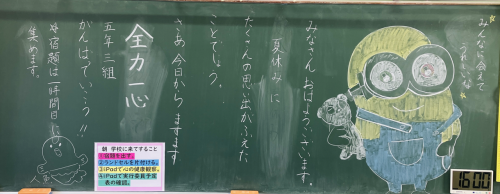 みんなに会えて
うれしいな
みなさん おはようございます。
夏休みに
たくさんの思い出がふえた
ことでしょう。
さあ 今日から ますます
全力 一心
五年三組
がんばっていこう!!
※宿題は一時間目に
集めます。
朝 学校に来てすること
1.宿題を出す。
2.ランドセルを片付ける。
3.iPadで心の健康観察。
4.iPadで実行委員予定
表の確認。
16:00